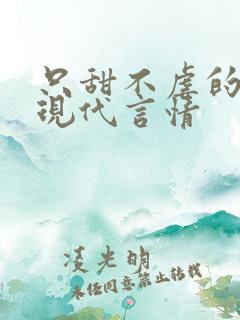 只甜不虐的
現代言情
凌光明
未经同意禁止转载